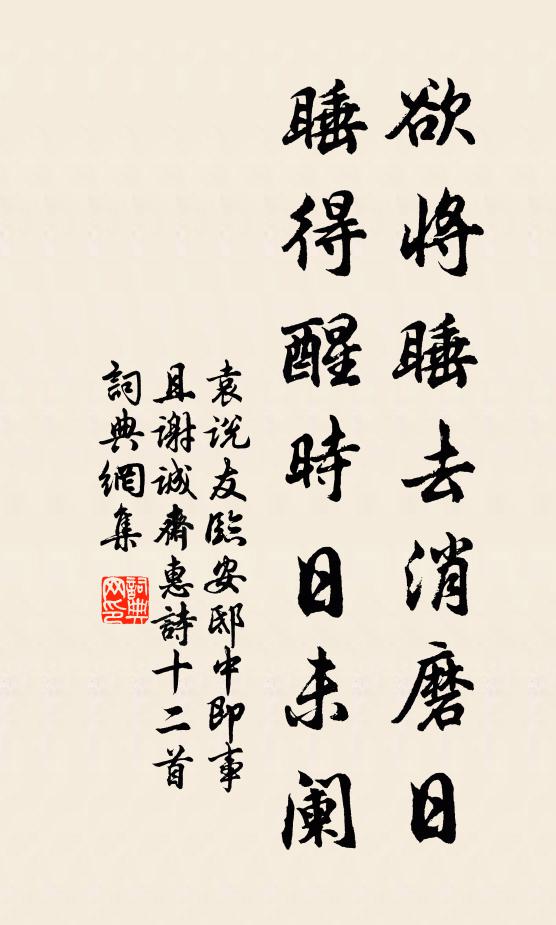 欲将睡去消磨日
睡得醒時日未阑
袁说友臨安邸中即事
且谢诚齋惠詩十二首
詞典網集
詞典網印